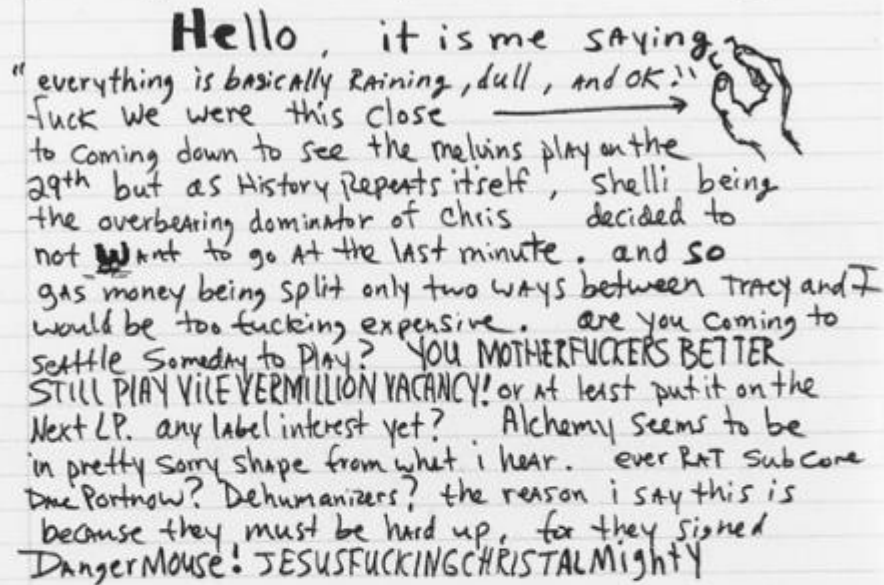 Hello, it is me saying
"everything is basically Raining, dull, and OK!"
fuck we were this close
to coming down to see the melvins play on the
29th but as History Repeats itself, Shelli being
the overbearing dominator of Chris decided to
not Want to go At the last minute. and so
gas money being split only two ways between Tracy and I
would be too fucking expensive. are you coming to
seattle Someday to Play? YOU MOTHERFUCKERS BETTER
STILL PLAY VILE VERMILLION VACANCY! or at least put it on the
Next LP. any label interest yet? Alchemy seems to be
in pretty sorry shape from what i hear. ever RAT Subcore
Portnow? Dehumanizers? the reason i say this is
because they must be hard up, for they signed
DangerMouse! JESUSFUCKINGCHRISTALMighty